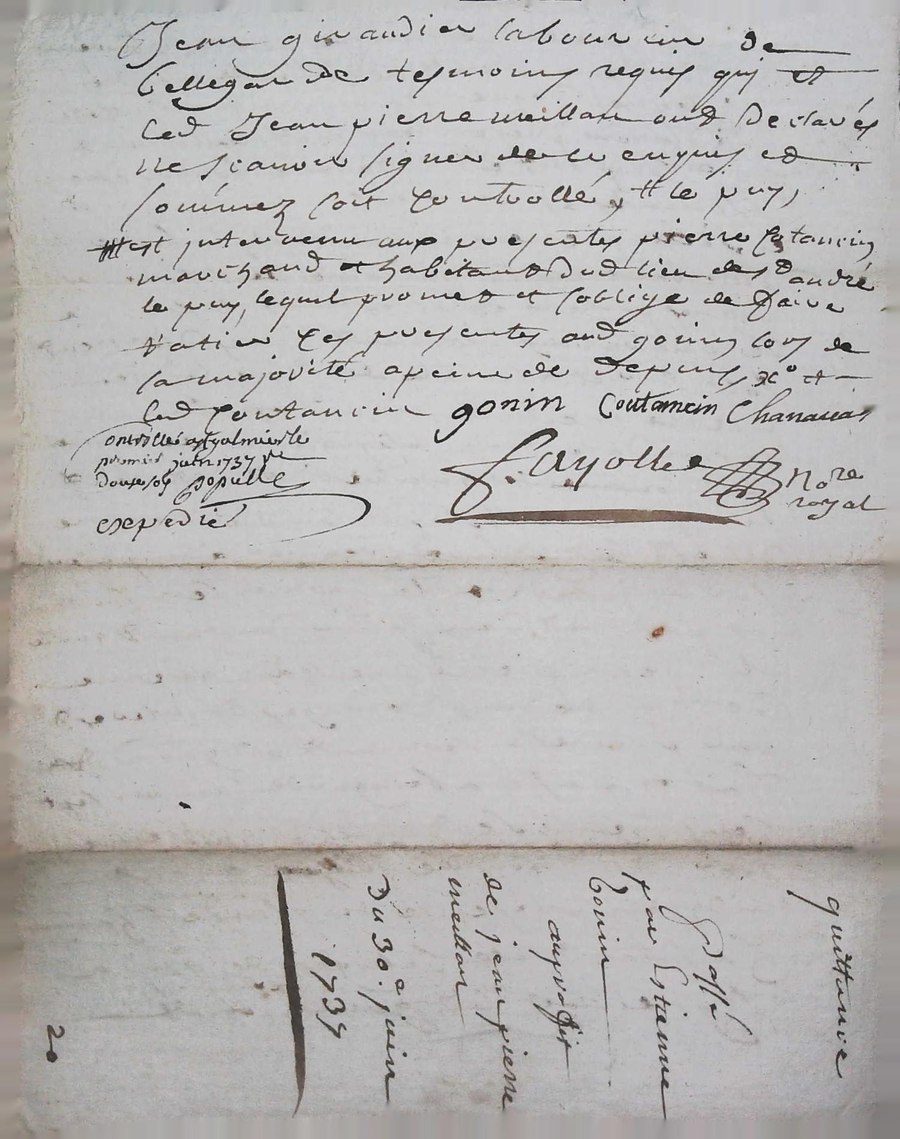 Jean giraudier laboureur de
bellegarde tesmoins requis qui et
led Jean pierre meillan ont declarés
ne scavoir signer de ce enquis et
sommez soit controllé, # le puy,
# est intervenu aux presentes pierre Cotancin
marchand et habitant dud lieu de St andré
le puy, lequel promet et soblige de faire
ratier ces presentes aud gonin lors de
sa majorité apeine de depens xo et
led Coutancin gonin Coutancin Chanavas
Controllé a St galmier le
premier juin 1737
douze sols
expedié
fayolle Nore
royal
quittance
Passé
par Estienne
Gonin
auproffit
de jean pierre
meillan
Du 30e juin
1737
20